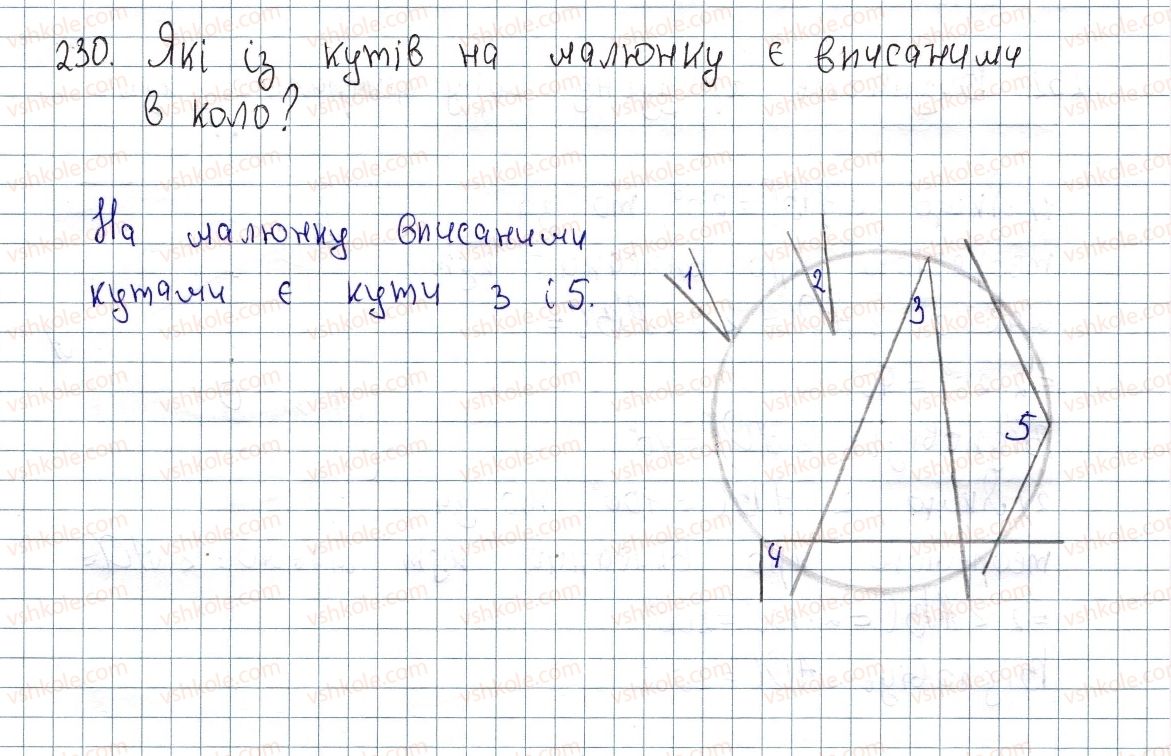 230. Які із кутів на малюнку є вписаними
в коло?
На малюнку вписаними
кутами є кути 3 і 5.
1
2
3
5
4
vshkole.com